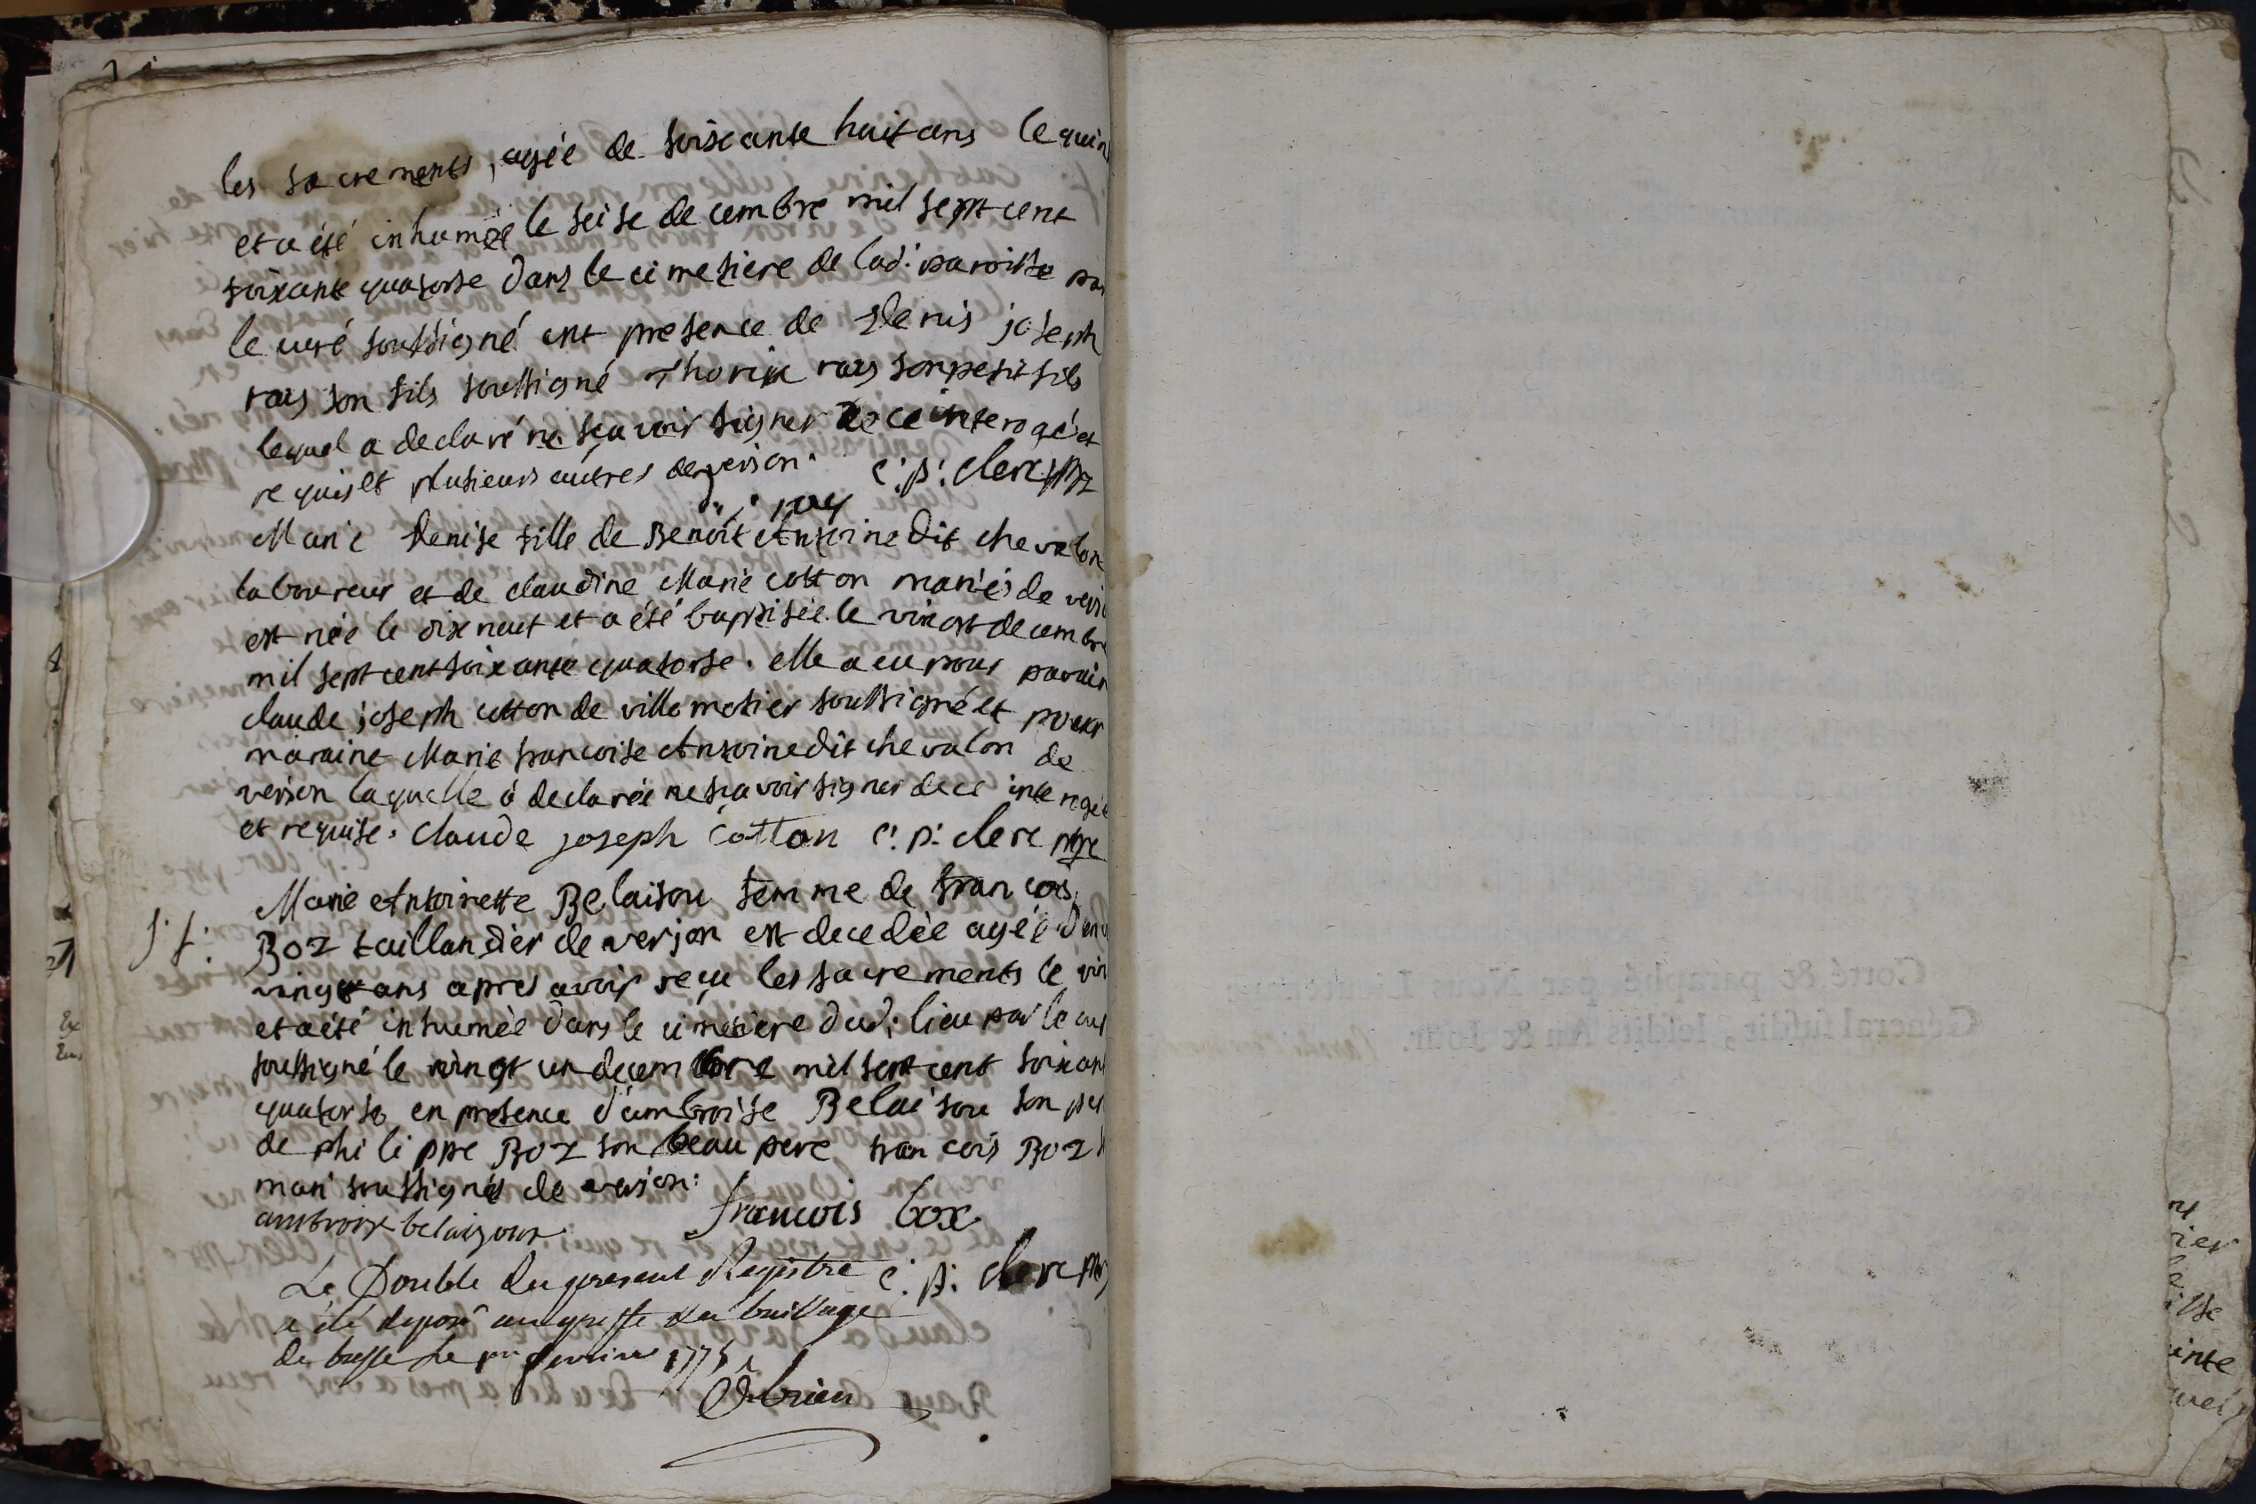 les sacrements, agée de soixante huit ans le quin
et a été inhumée le seise decembre mil sept cent
soixante quatorse dans le cimetiere de lad: paroisse par
le curé soussigné ent presence de denis joseph
ray son fils soussigné Thorix ray son petit fils
lequel a declaré ne sçavoir signer de ce interogé et
requis et plusieurs autres de verjon. c: p: clerc ptre
ray
Marie denise fille de Benoît Antoine dit chevalon
laboureur et de claudine Marie cotton mariés de verj
est née le dix neuf et a été baptisée le vingt decembre
mil sept cent soixante quatorse. elle a eu pour parain
claude joseph cotton de villemotier soussigné et pour
maraine Marie francoise Antoine dit chevalon de
verjon laquelle á declarée ne sçavoir signer de ce interogée
et requise. Claude joseph Cotton c: p: clerc ptre
Marie Antoinette Belaisou femme de francois
Boz taillandier de verjon est decedée agée d'en
vingt ans apres avoir reçu les sacrements le vin
et a été inhumée dans le cimetiere dud: lieu par le cu
soussigné le vingt un decembre mil sept cent soixan
quatorse en presence d'ambroise Belaisou son pe
de philippe Boz son beau pere francois Boz
mari soussignés de verjon:
ambroise belaizour francois box
Le Double du present Registre c: p: clerc ptre
a été deposé au greffe du bailliage
de bresse le pr fevrier 1775
Cotté & paraphé par Nous L
Général susdit, lesdits An & Jour.